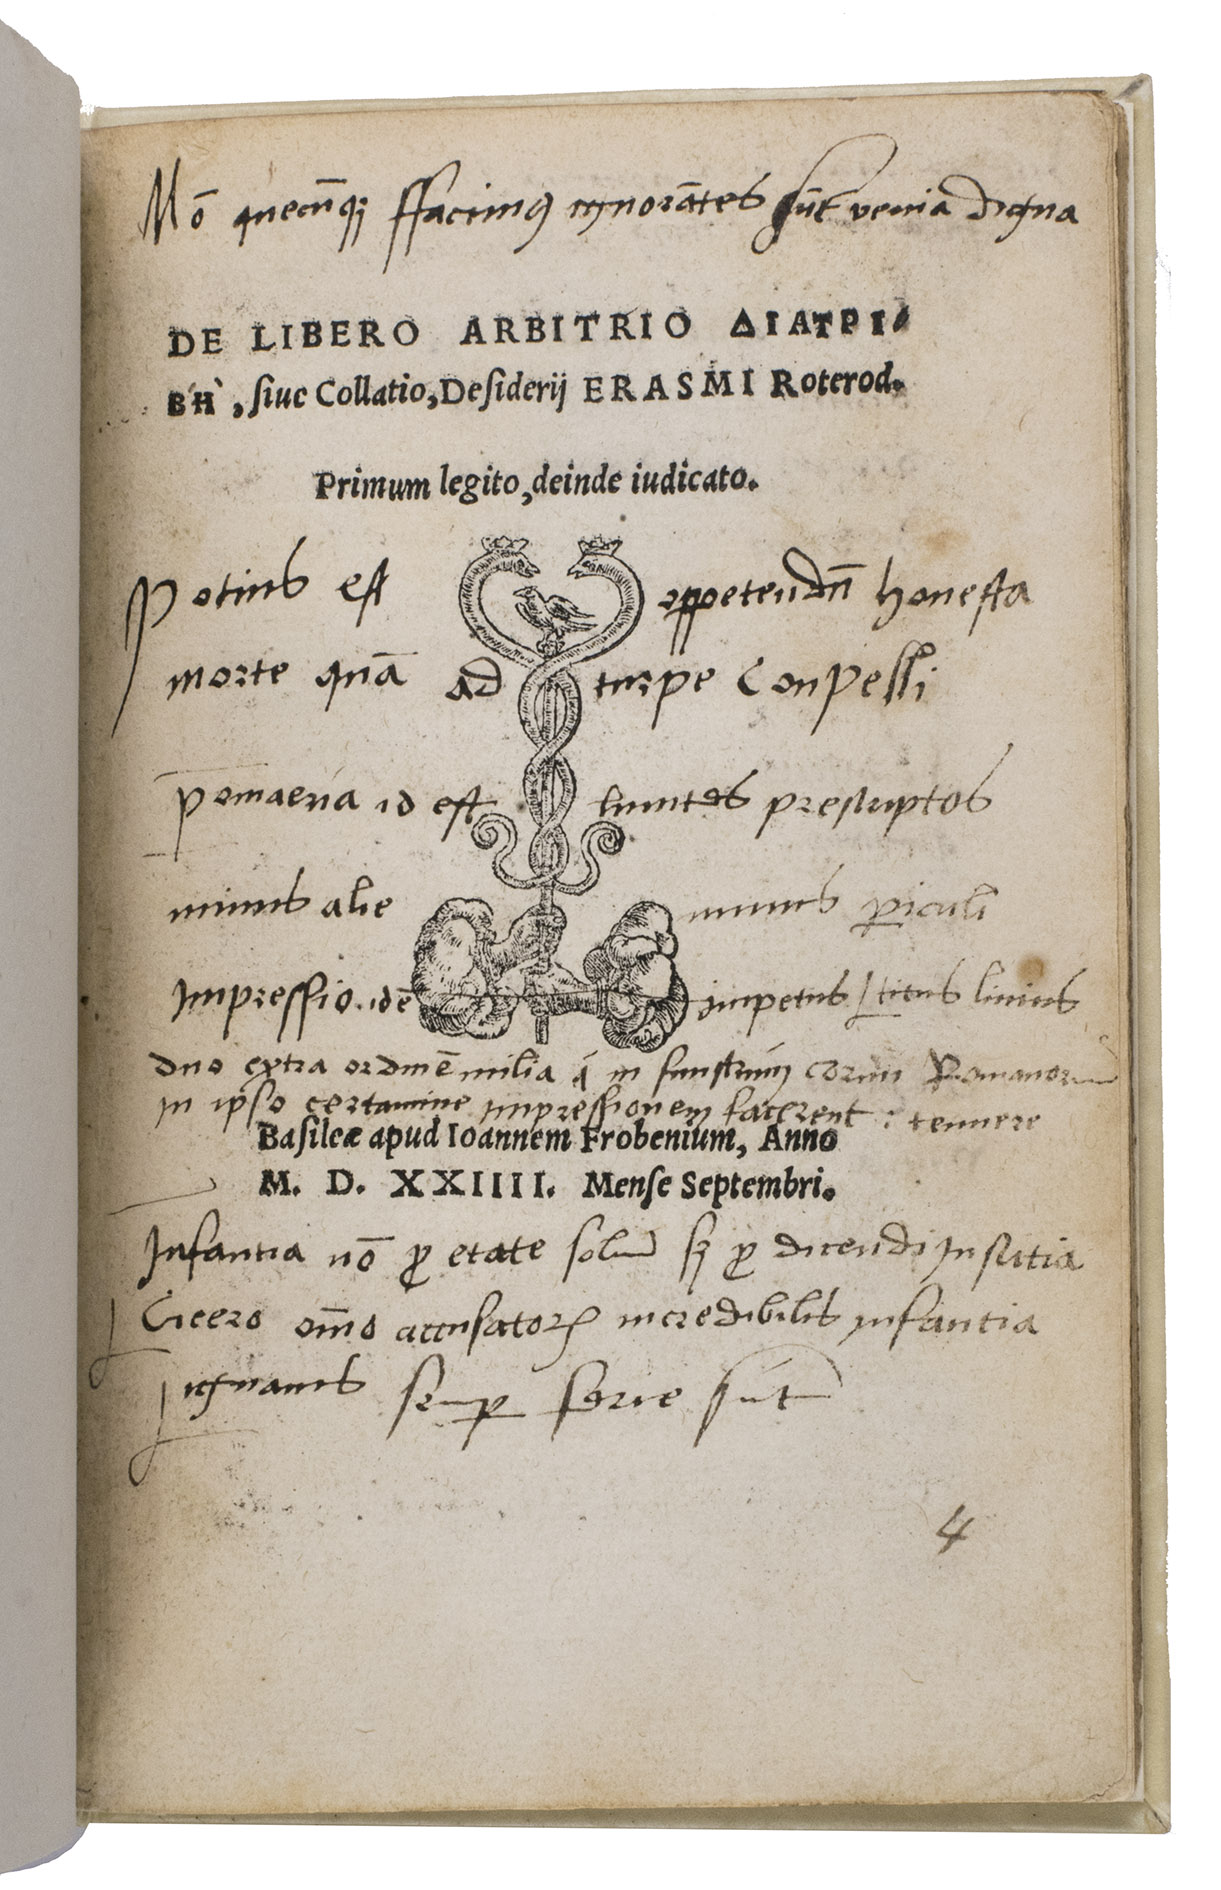 Nō quecūqꝫ ffacimꝰ ignorātes sūt venia digna
DE LIBERO ARBITRIO ΔΙΑΤΡΙ-
ΒῊ, ſiue Collatio, Deſiderij ERASMI Roterod.
Primum legito, deinde iudicato.
Potius est oppetendū honesta
morte quā ad turpe Conpelli
pomaeria id est limites prescriptos
minus alie minus ꝑiculi
Impressio . idē impetus / titus liuius
duo extra ordinē milia in eorum Romanorum
in ipso certamine impressionem facerent : temere
Baſileæ apud Ioannem Frobenium, Anno
M. D. XXIIII. Menſe Septembri.
Infantia nō ꝓ etate solum sꝫ ꝓ dicendi inscitia
Cicero om̄o accusatorꝝ incredibilis infantia
semꝑ serie sūt
4